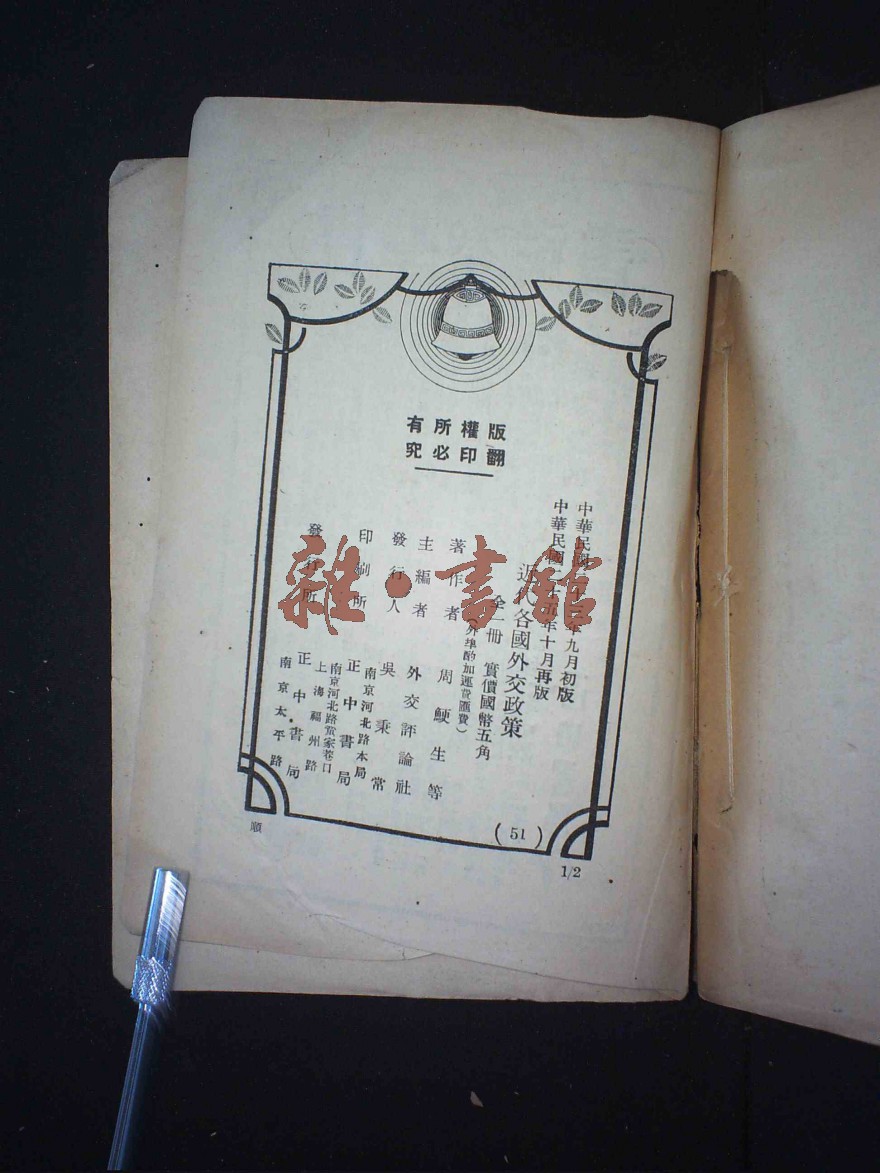 版權所有
翻印必究
中華民國二十三年九月初版
中華民國二十五年十月再版
近代各國外交政策
全一冊 實價國幣五角
(外埠酌加運費匯費)
著作者 周鯁生等
主編者 外交評論社
發行人 吳秉常
南京河北路本局
印刷所 正中書局
南京河北路童家巷口
上海福州路
發行所 正中書局
南京太平路
(51)
順
1/2
雜·書館